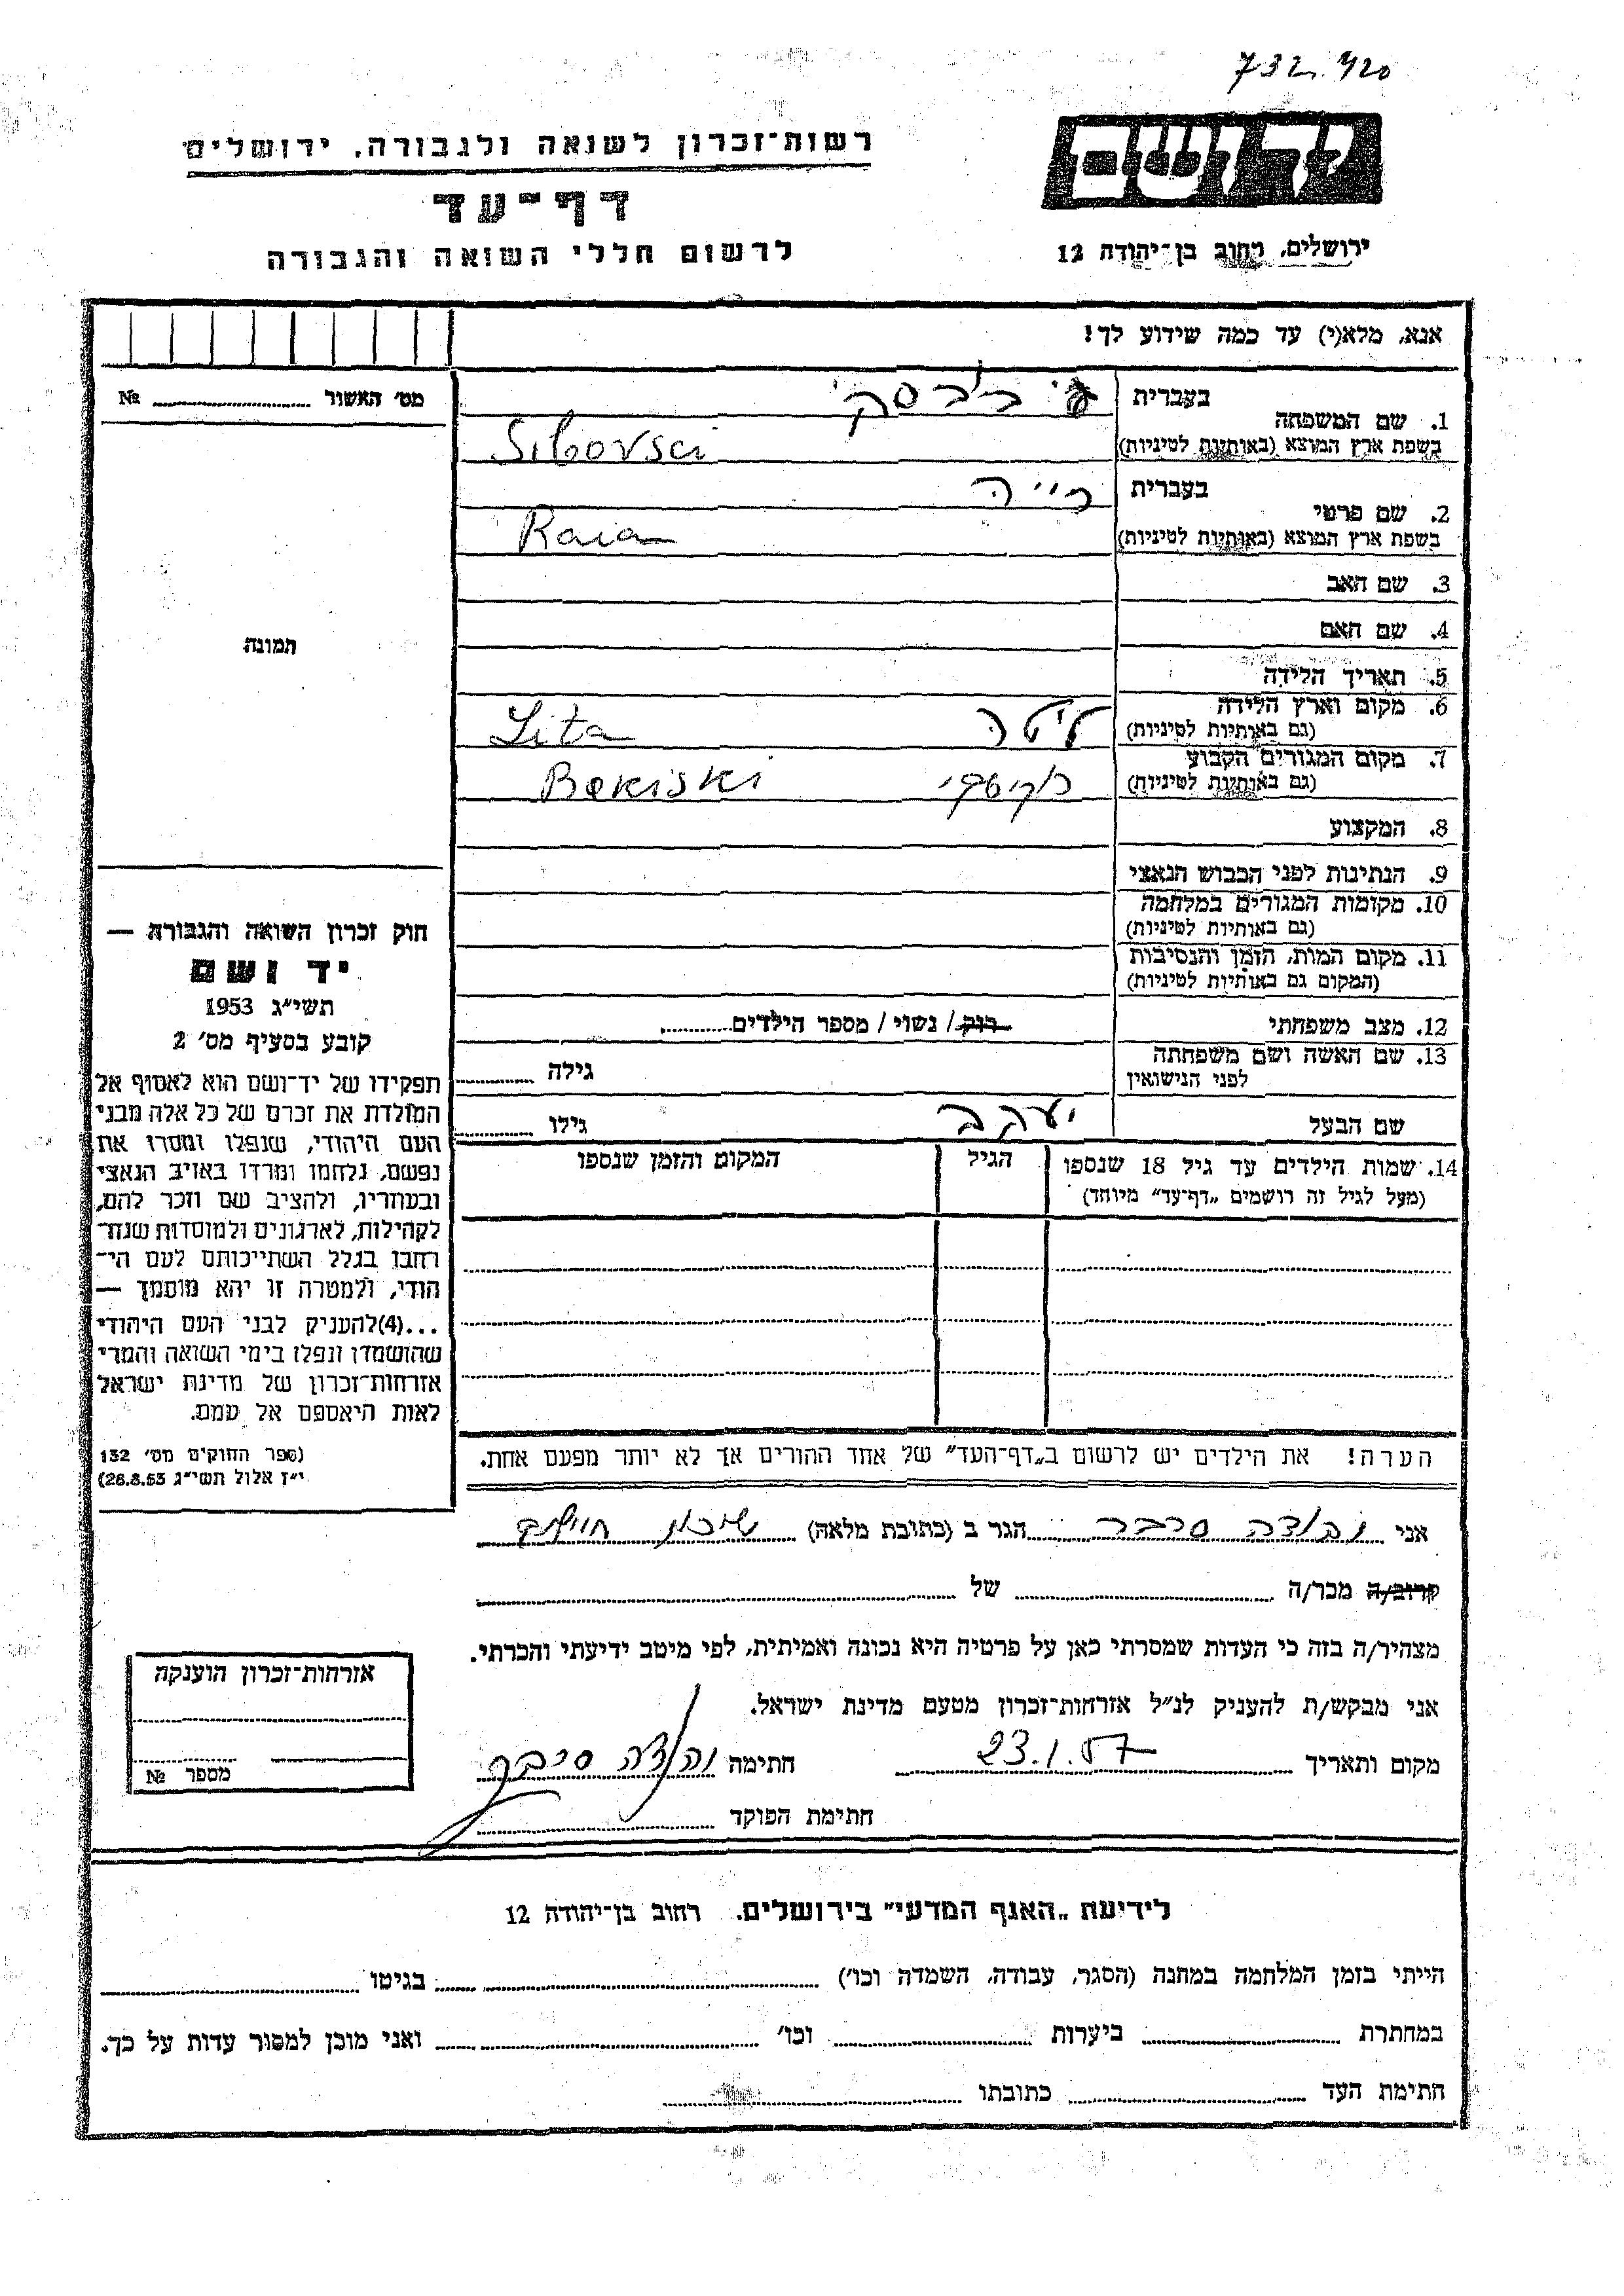 732.420
רשות־זכרון לשואה ולגבורה, ירושלים
דף־עד
לרשום חללי השואה והגבורה
ירושלים, רחוב בן־יהודה 12
אנא, מלא(י) עד כמה שידוע לך!
מס׳ האשור № 
1. שם המשפחה בעברית
בשפת ארץ המוצא (באותיות לטיניות) Sibovsci
2. שם פרטי בעברית רייה
בשפת ארץ המוצא (באותיות לטיניות) Raia
3. שם האב
4. שם האם
5. תאריך הלידה
6. מקום וארץ הלידה ליטה Lita
(גם באותיות לטיניות)
7. מקום המגורים הקבוע Bokiski
(גם באותיות לטיניות)
8. המקצוע
9. הנתינות לפני הכבוש הנאצי
10. מקומות המגורים במלחמה
(גם באותיות לטיניות)
11. מקום המות, הזמן והנסיבות
(המקום גם באותיות לטיניות)
12. מצב משפחתי רוק / נשוי / מספר הילדים
13. שם האשה ושם משפחתה גילה
לפני הנישואין
שם הבעל יעקב גילו
14. שמות הילדים עד גיל 18 שנספו הגיל המקום והזמן שנספו
(מעל לגיל זה רושמים „דף־עד״ מיוחד)
הערה! את הילדים יש לרשום ב„דף־העד״ של אחד ההורים אך לא יותר מפעם אחת.
תמונה
חוק זכרון השואה והגבורה —
יד ושם
תשי״ג 1953
קובע בסעיף מס׳ 2
תפקידו של יד־ושם הוא לאסוף אל
המולדת את זכרם של כל אלה מבני
העם היהודי, שנפלו ומסרו את
נפשם, נלחמו ומרדו באויב הנאצי
ובעוזריו, ולהציב שם וזכר להם,
לקהילות, לארגונים ולמוסדות שנח־
רבו בגלל השתייכותם לעם הי־
הודי, ולמטרה זו יהא מוסמך —
...(4)להעניק לבני העם היהודי
שהושמדו ונפלו בימי השואה והמרי
אזרחות־זכרון של מדינת ישראל
לאות היאספם אל עמם.
(ספר החוקים מס׳ 132
י״ז אלול תשי״ג 28.8.53)
אני הגר ב (כתובת מלאה) שיכון
קרוב/ה מכר/ה של
מצהיר/ה בזה כי העדות שמסרתי כאן על פרטיה היא נכונה ואמיתית, לפי מיטב ידיעתי והכרתי.
אני מבקש/ת להעניק לנ״ל אזרחות־זכרון מטעם מדינת ישראל.
מקום ותאריך 23.1.57 חתימה
חתימת הפוקד
אזרחות־זכרון הוענקה
מספר №
לידיעת „האגף המדעי״ בירושלים. רחוב בן־יהודה 12
הייתי בזמן המלחמה במחנה (הסגר, עבודה, השמדה וכו׳) בגיטו
במחתרת ביערות וכו׳ ואני מוכן למסור עדות על כך.
חתימת העד כתובתו